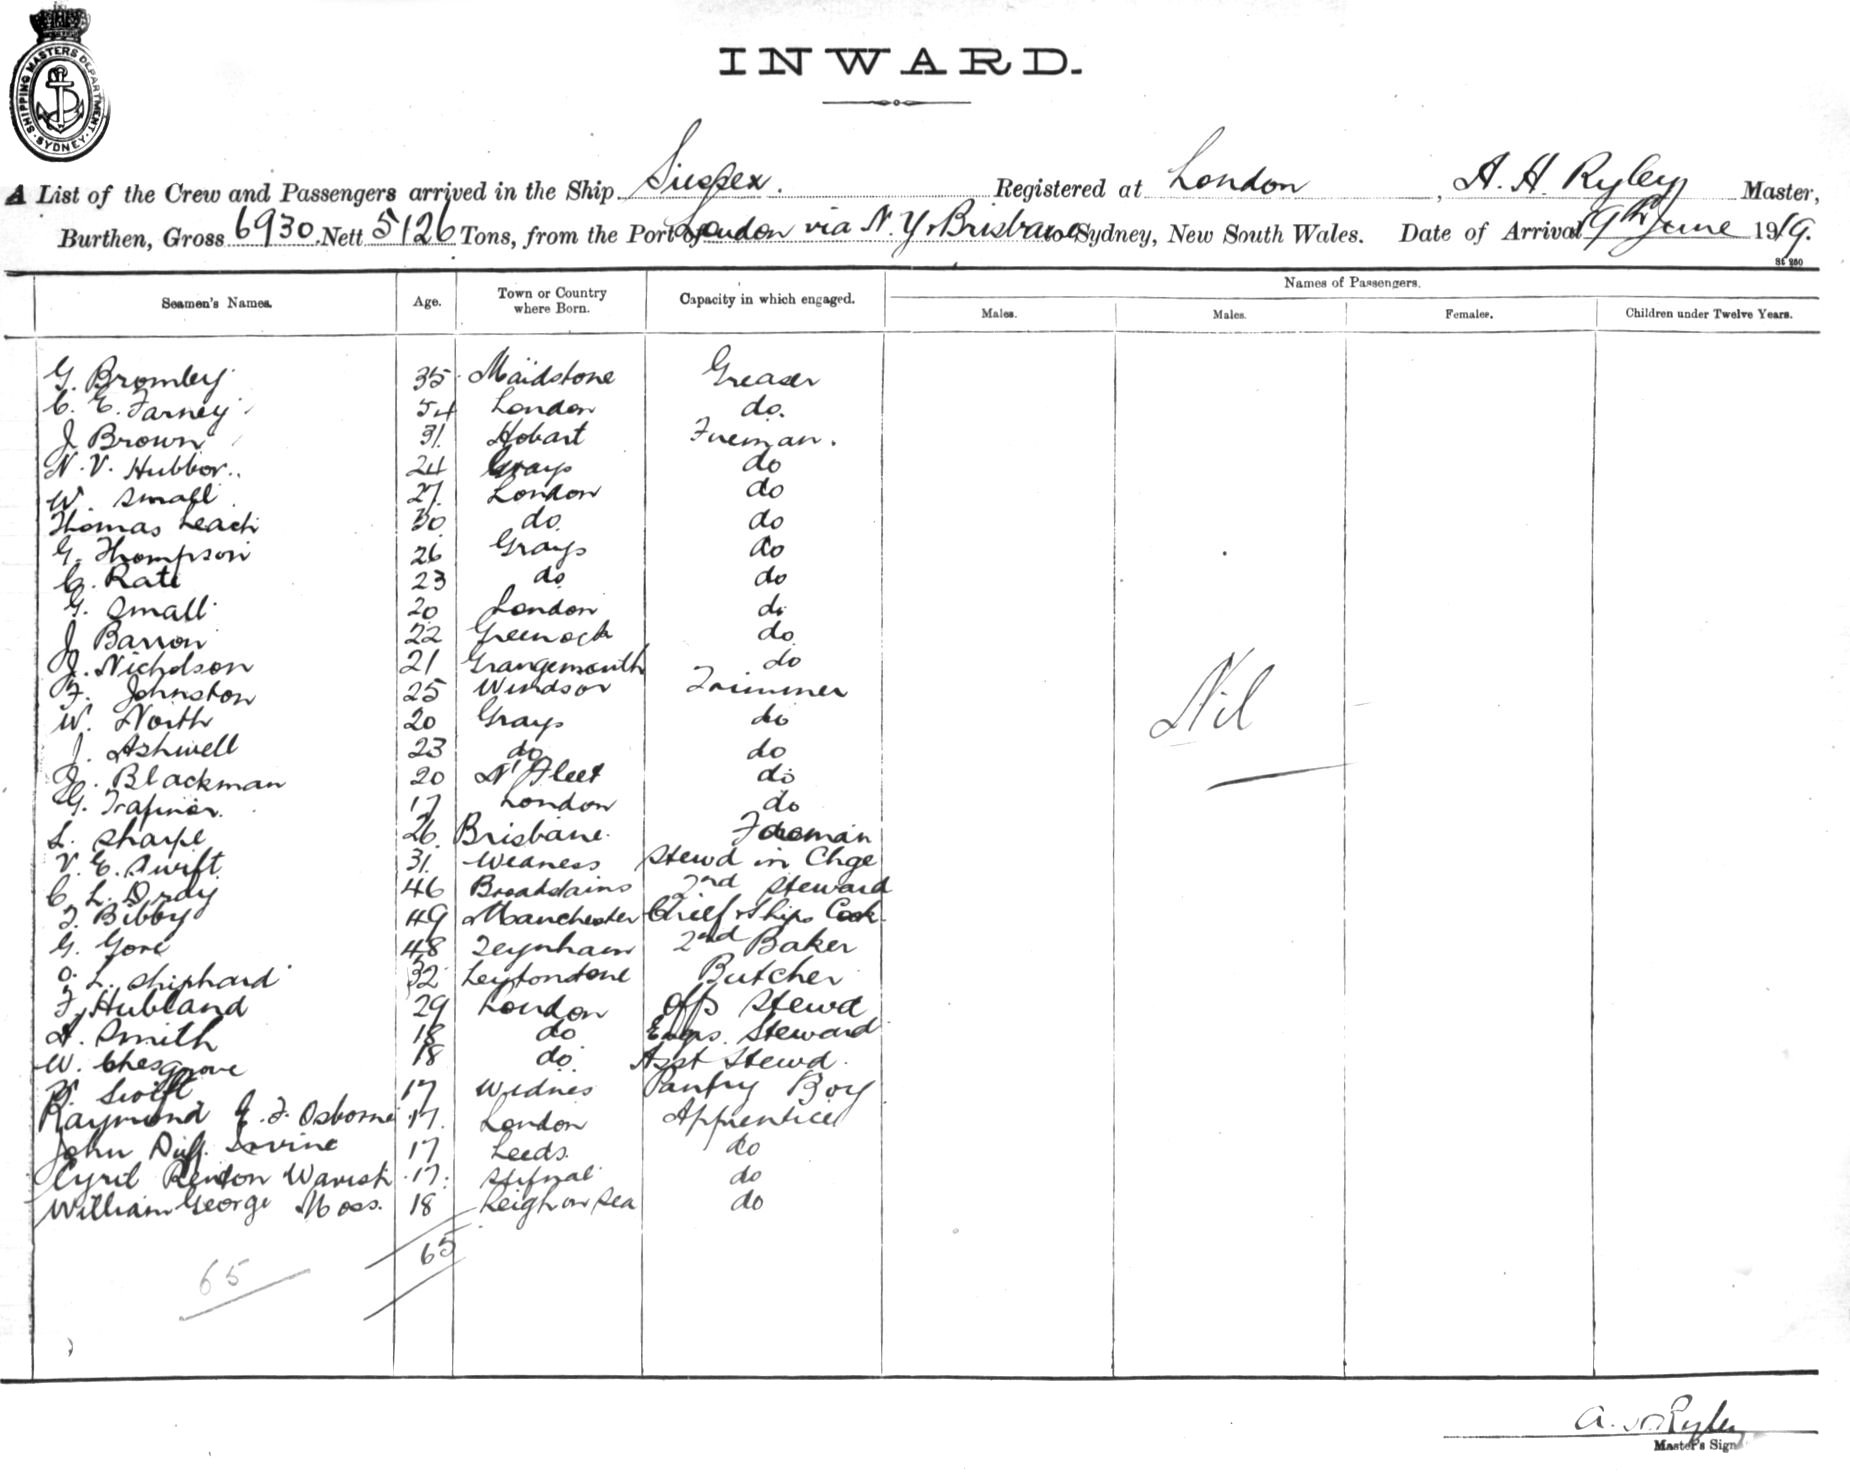 SHIPPING MASTERS DEPARTMENT SYDNEY
INWARD.
A List of the Crew and Passengers arrived in the Ship Sussex. Registered at London, A. H. Ryley Master,
Burthen, Gross 6930. Nett 5126 Tons, from the Port of London via N. Y. Brisbane to Sydney, New South Wales. Date of Arrival 9th June 1919.
Names of Passengers.
Seamen's Names. Age. Town or Country where Born. Capacity in which engaged. Males. Males. Females. Children under Twelve Years.
G. Bromley 35 Maidstone Greaser
C. E. Farney 54 London do.
J. Brown 31. Hobart Fireman.
N. V. 24 Grays do
W. Small 27. London do
Thomas Leach 30 do. do
G. Thompson 26 Grays do
C. Rate 23 do do
G. Small 20 London do
J. Barron 22 Greenock do
J. Nicholson 21 Grangemouth do
F. Johnston 25 Windsor Trimmer
W. North 20 Grays do
J. Ashwell 23 do do
Blackman 20 N' Fleet do
G. 17 London do
L. Sharpe 26 Brisbane.
V. E. Swift 31. Stewd in Chge
C. L. Dray 46 Broadstairs 2nd Steward
T. Bibby 49 Manchester Chief & Ships Cook
G. Gore 48 Teynham 2nd Baker
L. Shiphard 32 Leytonstone Butcher
F. Hubland 29 London Offs Stewd
A. Smith 18 do Engs. Steward
W. Chesgrove 18 do Asst Stewd.
Swift 17 Widnes Pantry Boy
Raymond E. F. Osborne 17. London Apprentice
John Duff. Irvine 17 Leeds. do
Cyril Renton 17. do
William George Moss. 18 Leigh on Sea do
Nil
65
65
A. H. Ryley
Master's Sign